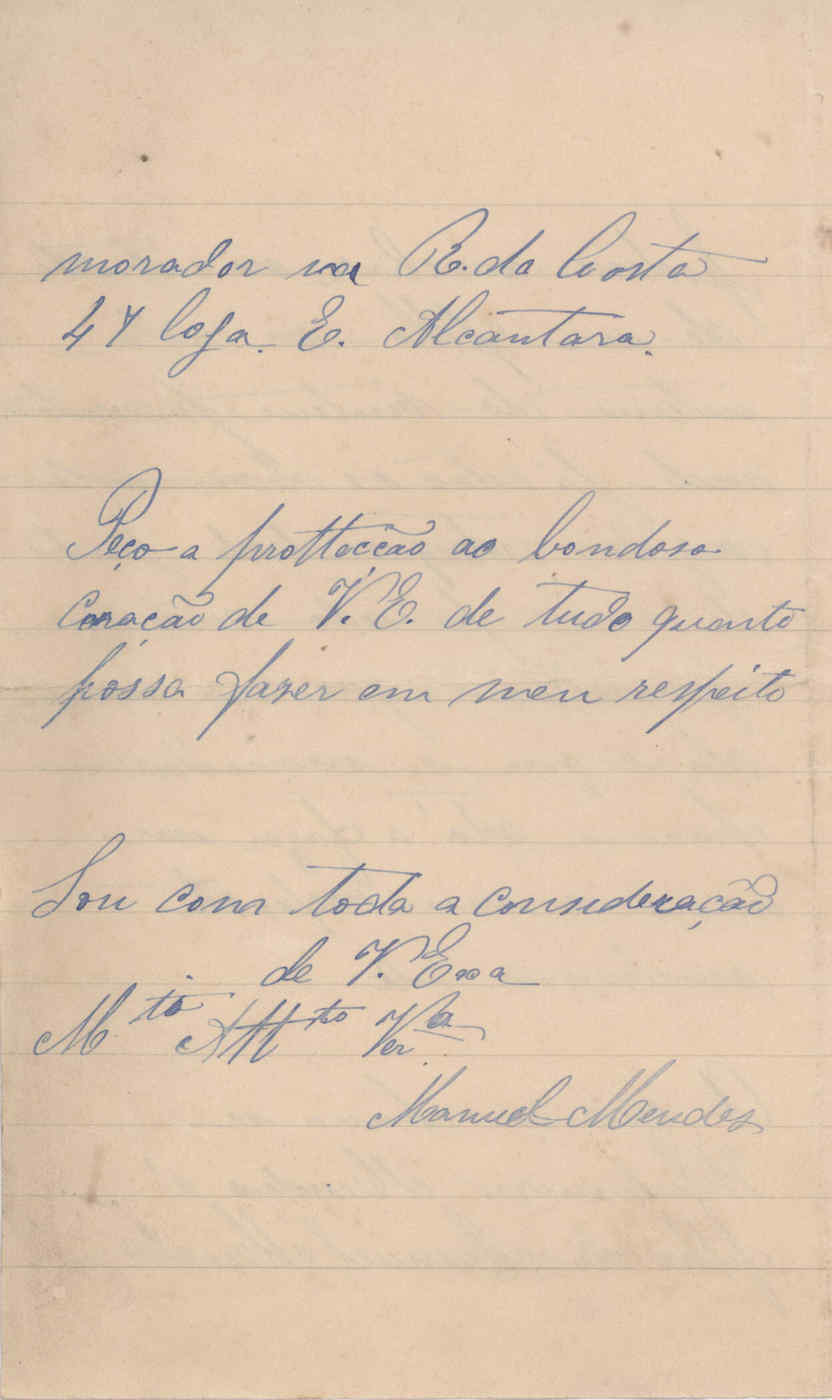 morador na R. da Costa
47 loja. E. Alcantara.
Peço a prottecção ao bondoso
Coração de V. E. de tudo quanto
possa fazer em meu respeito
Sou com toda a consideração
de V. Exa
M.to Att.to Ver.a
Manuel Mendes